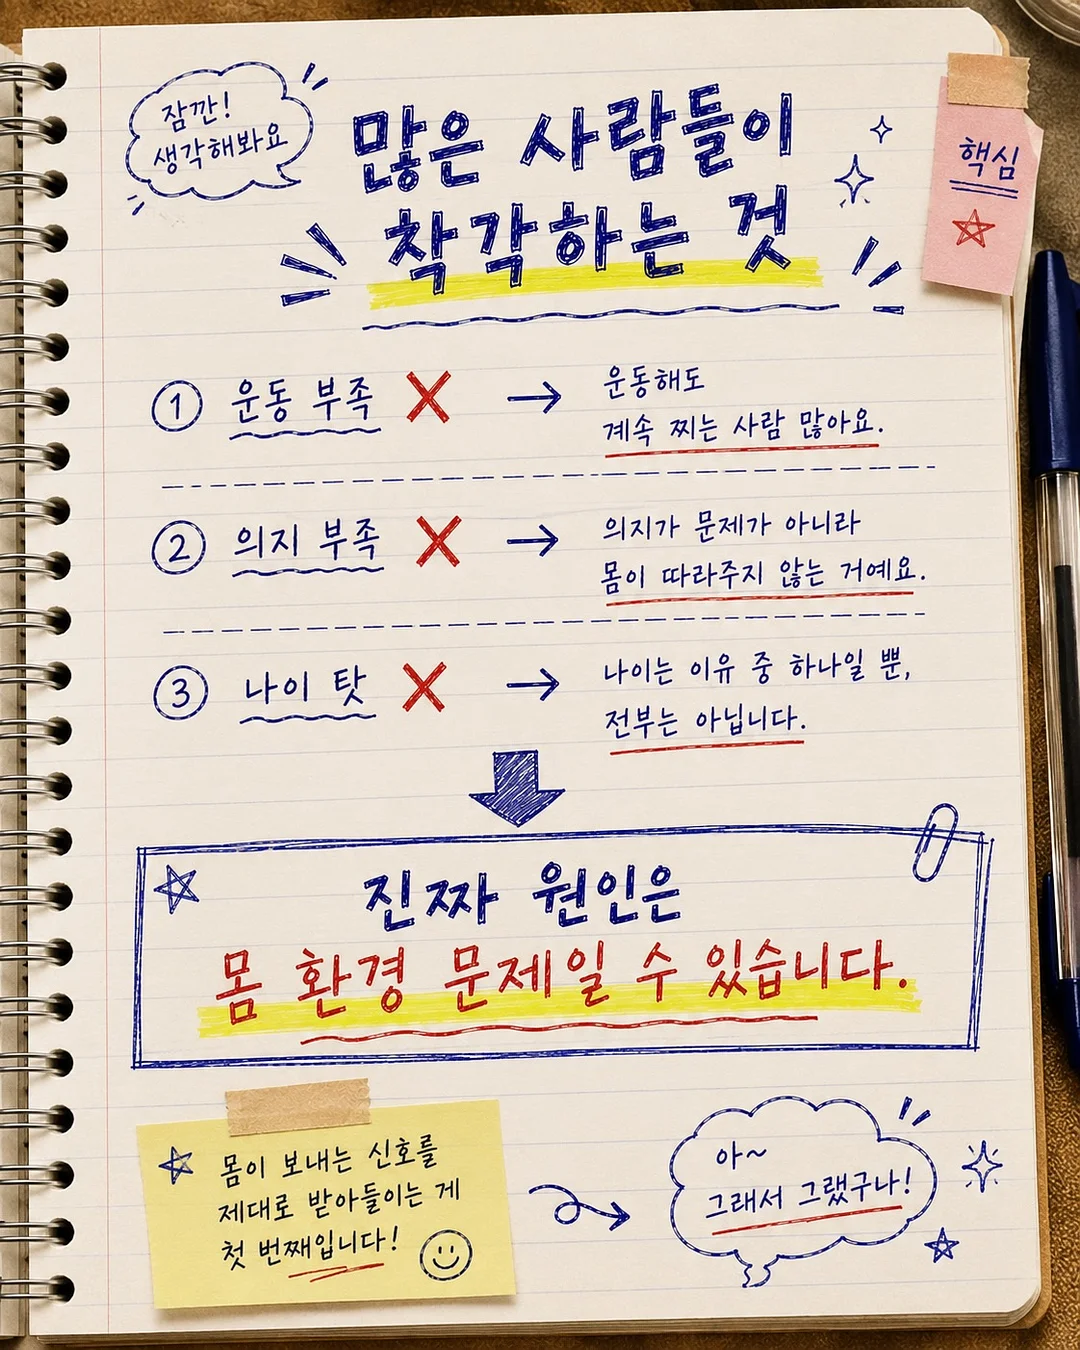 잠깐!
생각해봐요
많은 사람들이
착각하는 것
핵심
1 운동 부족 ✕ → 운동해도
계속 찌는 사람 많아요.
2 의지 부족 ✕ → 의지가 문제가 아니라
몸이 따라주지 않는 거예요.
3 나이 탓 ✕ → 나이는 이유 중 하나일 뿐,
전부는 아닙니다.
진짜 원인은
몸 환경 문제일 수 있습니다.
몸이 보내는 신호를
제대로 받아들이는 게
첫 번째입니다!
아~
그래서 그랬구나!